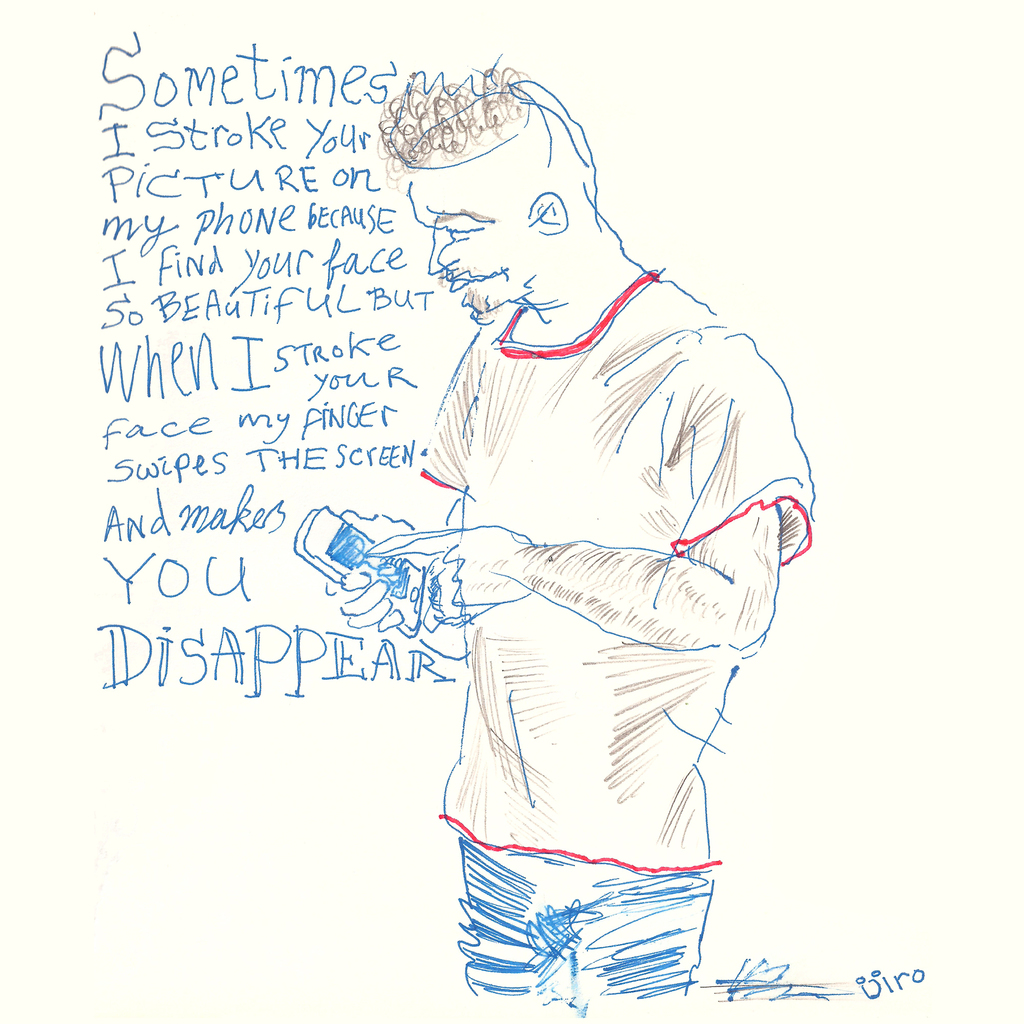 Sometimes my
I Stroke your
PiCTURE on
my phoNe BECAUSE
I find your face
so BEAuTiFUL BUT
When I STROKE
youR
face my fiNGER
swipes THE SCREEN.
ANd makes
YOU
DiSAPPEAR
jiro